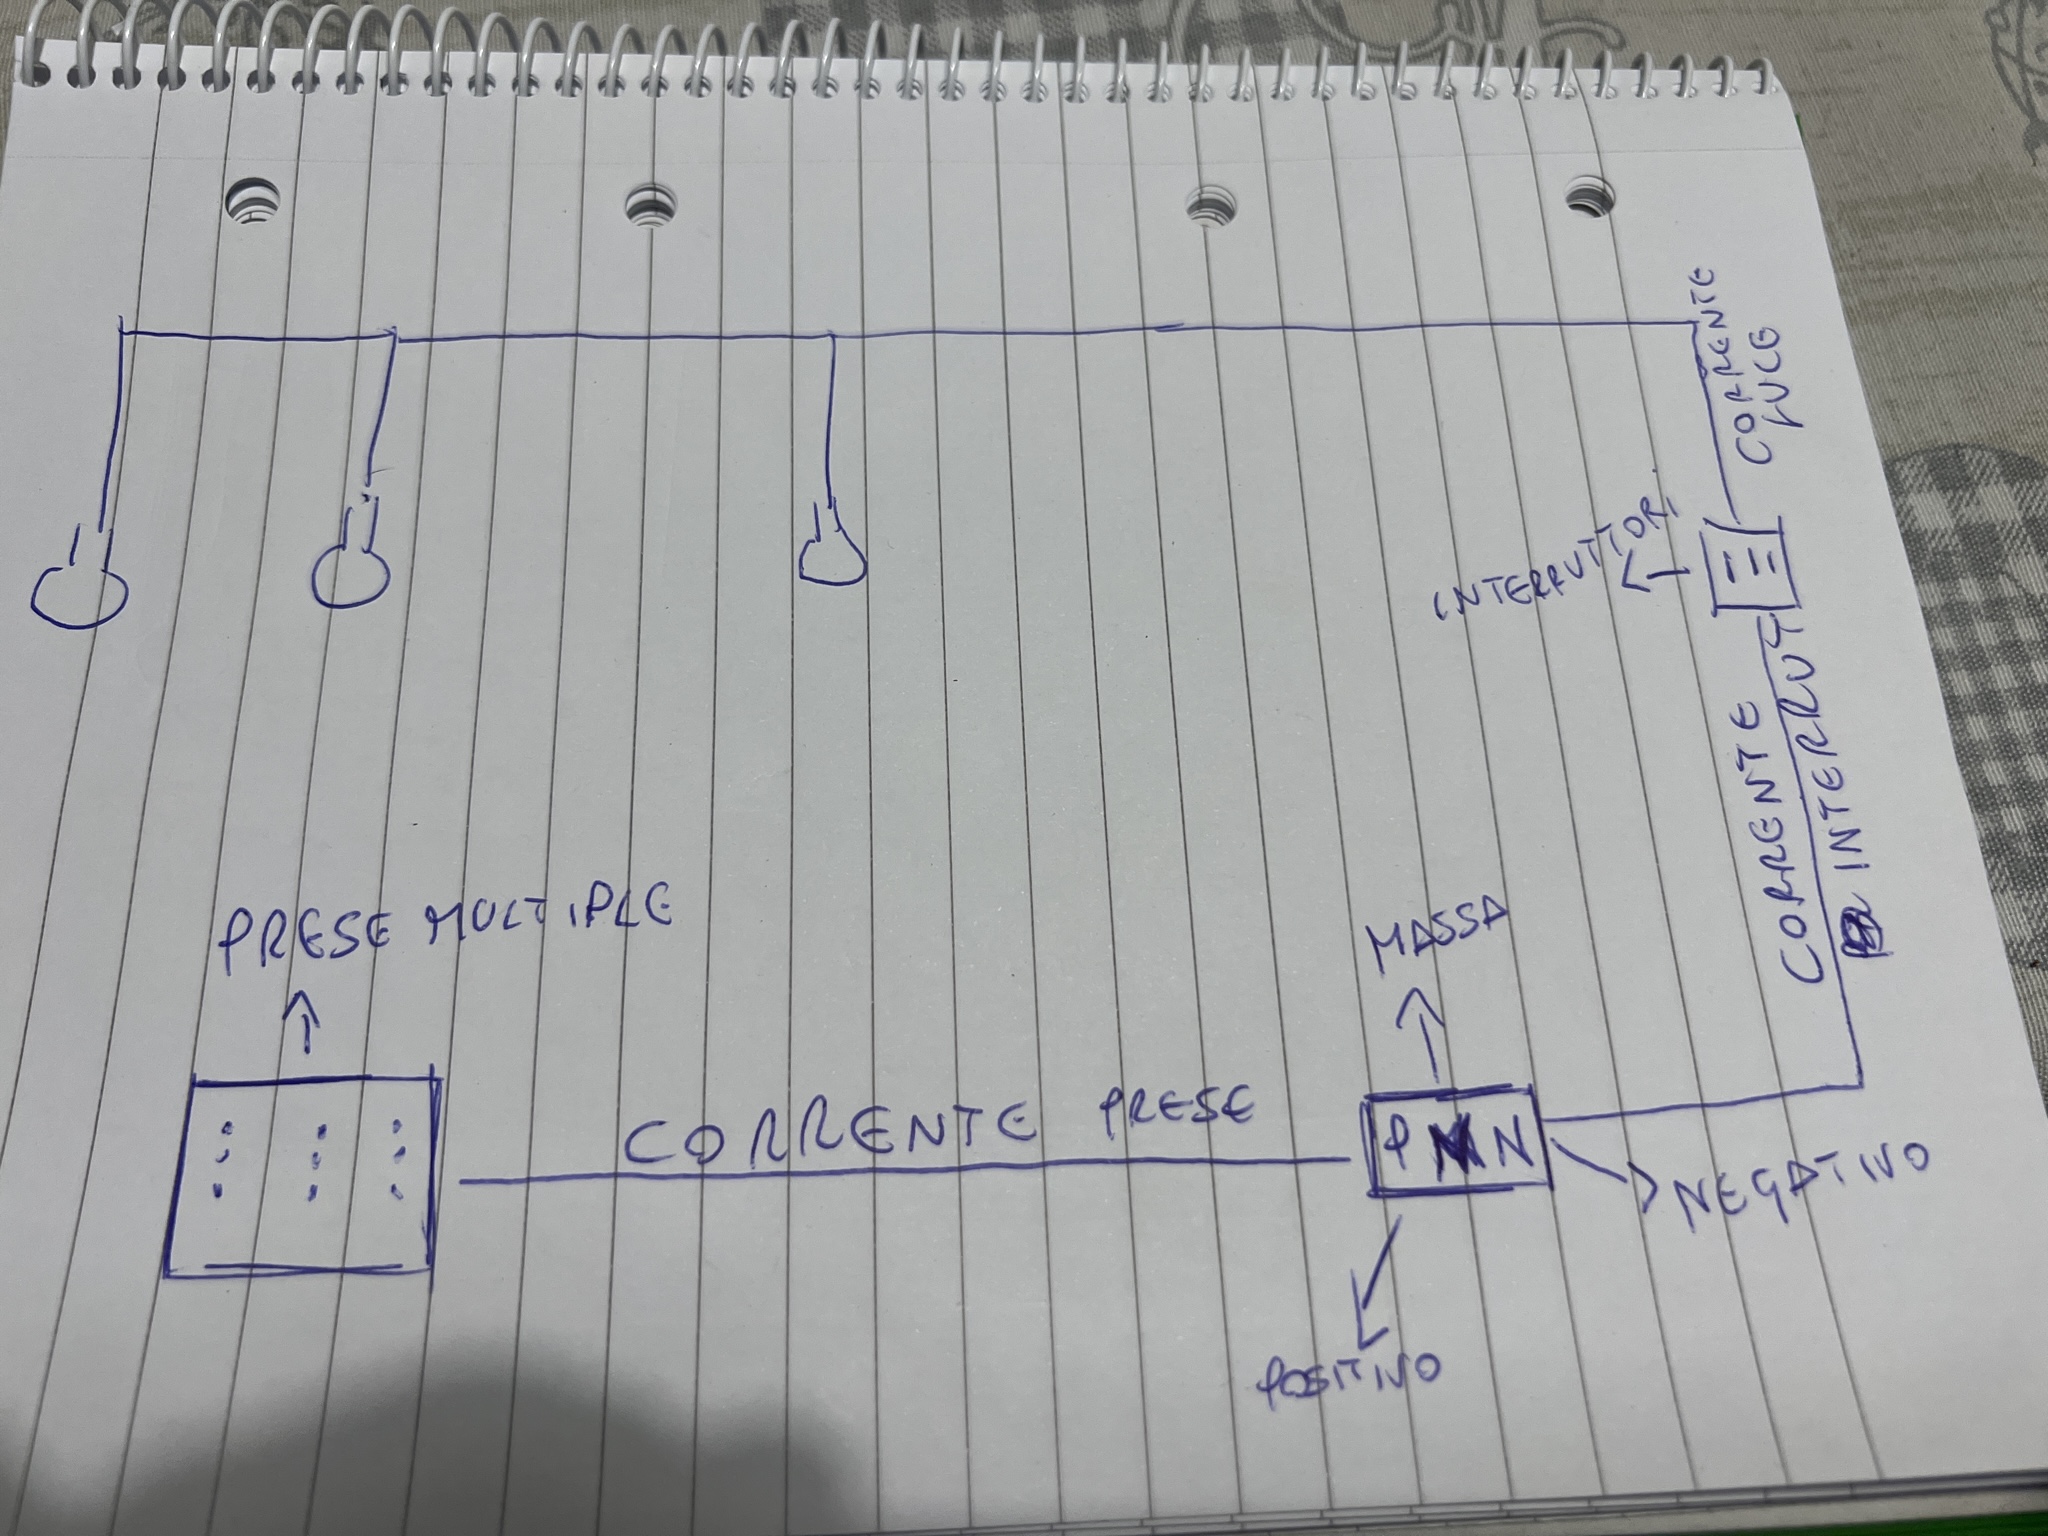 CORRENTE
LUCE
INTERRUTTORI
CORRENTE
INTERRUTT
PRESE MULTIPLE
MASSA
CORRENTE PRESE
P M N
NEGATIVO
POSITIVO